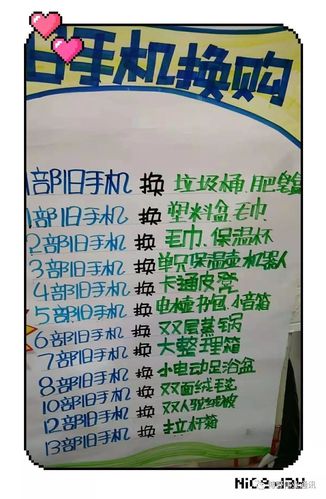 旧手机换购
1部旧手机 换 垃圾桶.肥皂盒
1部旧手机 换 塑料盒.毛巾
2部旧手机 换 毛巾.保温杯
3部旧手机 换 单只保温壶.机器人
4部旧手机 换 卡通皮凳
5部旧手机 换 书包.小音箱
6部旧手机 换 双层蒸锅
7部旧手机 换 大整理箱
8部旧手机 换 小电动足浴盆
10部旧手机 换 双面绒毛毯
12部旧手机 换 双人驼绒被
13部旧手机 换 拉杆箱
NiCe DAY
通讯